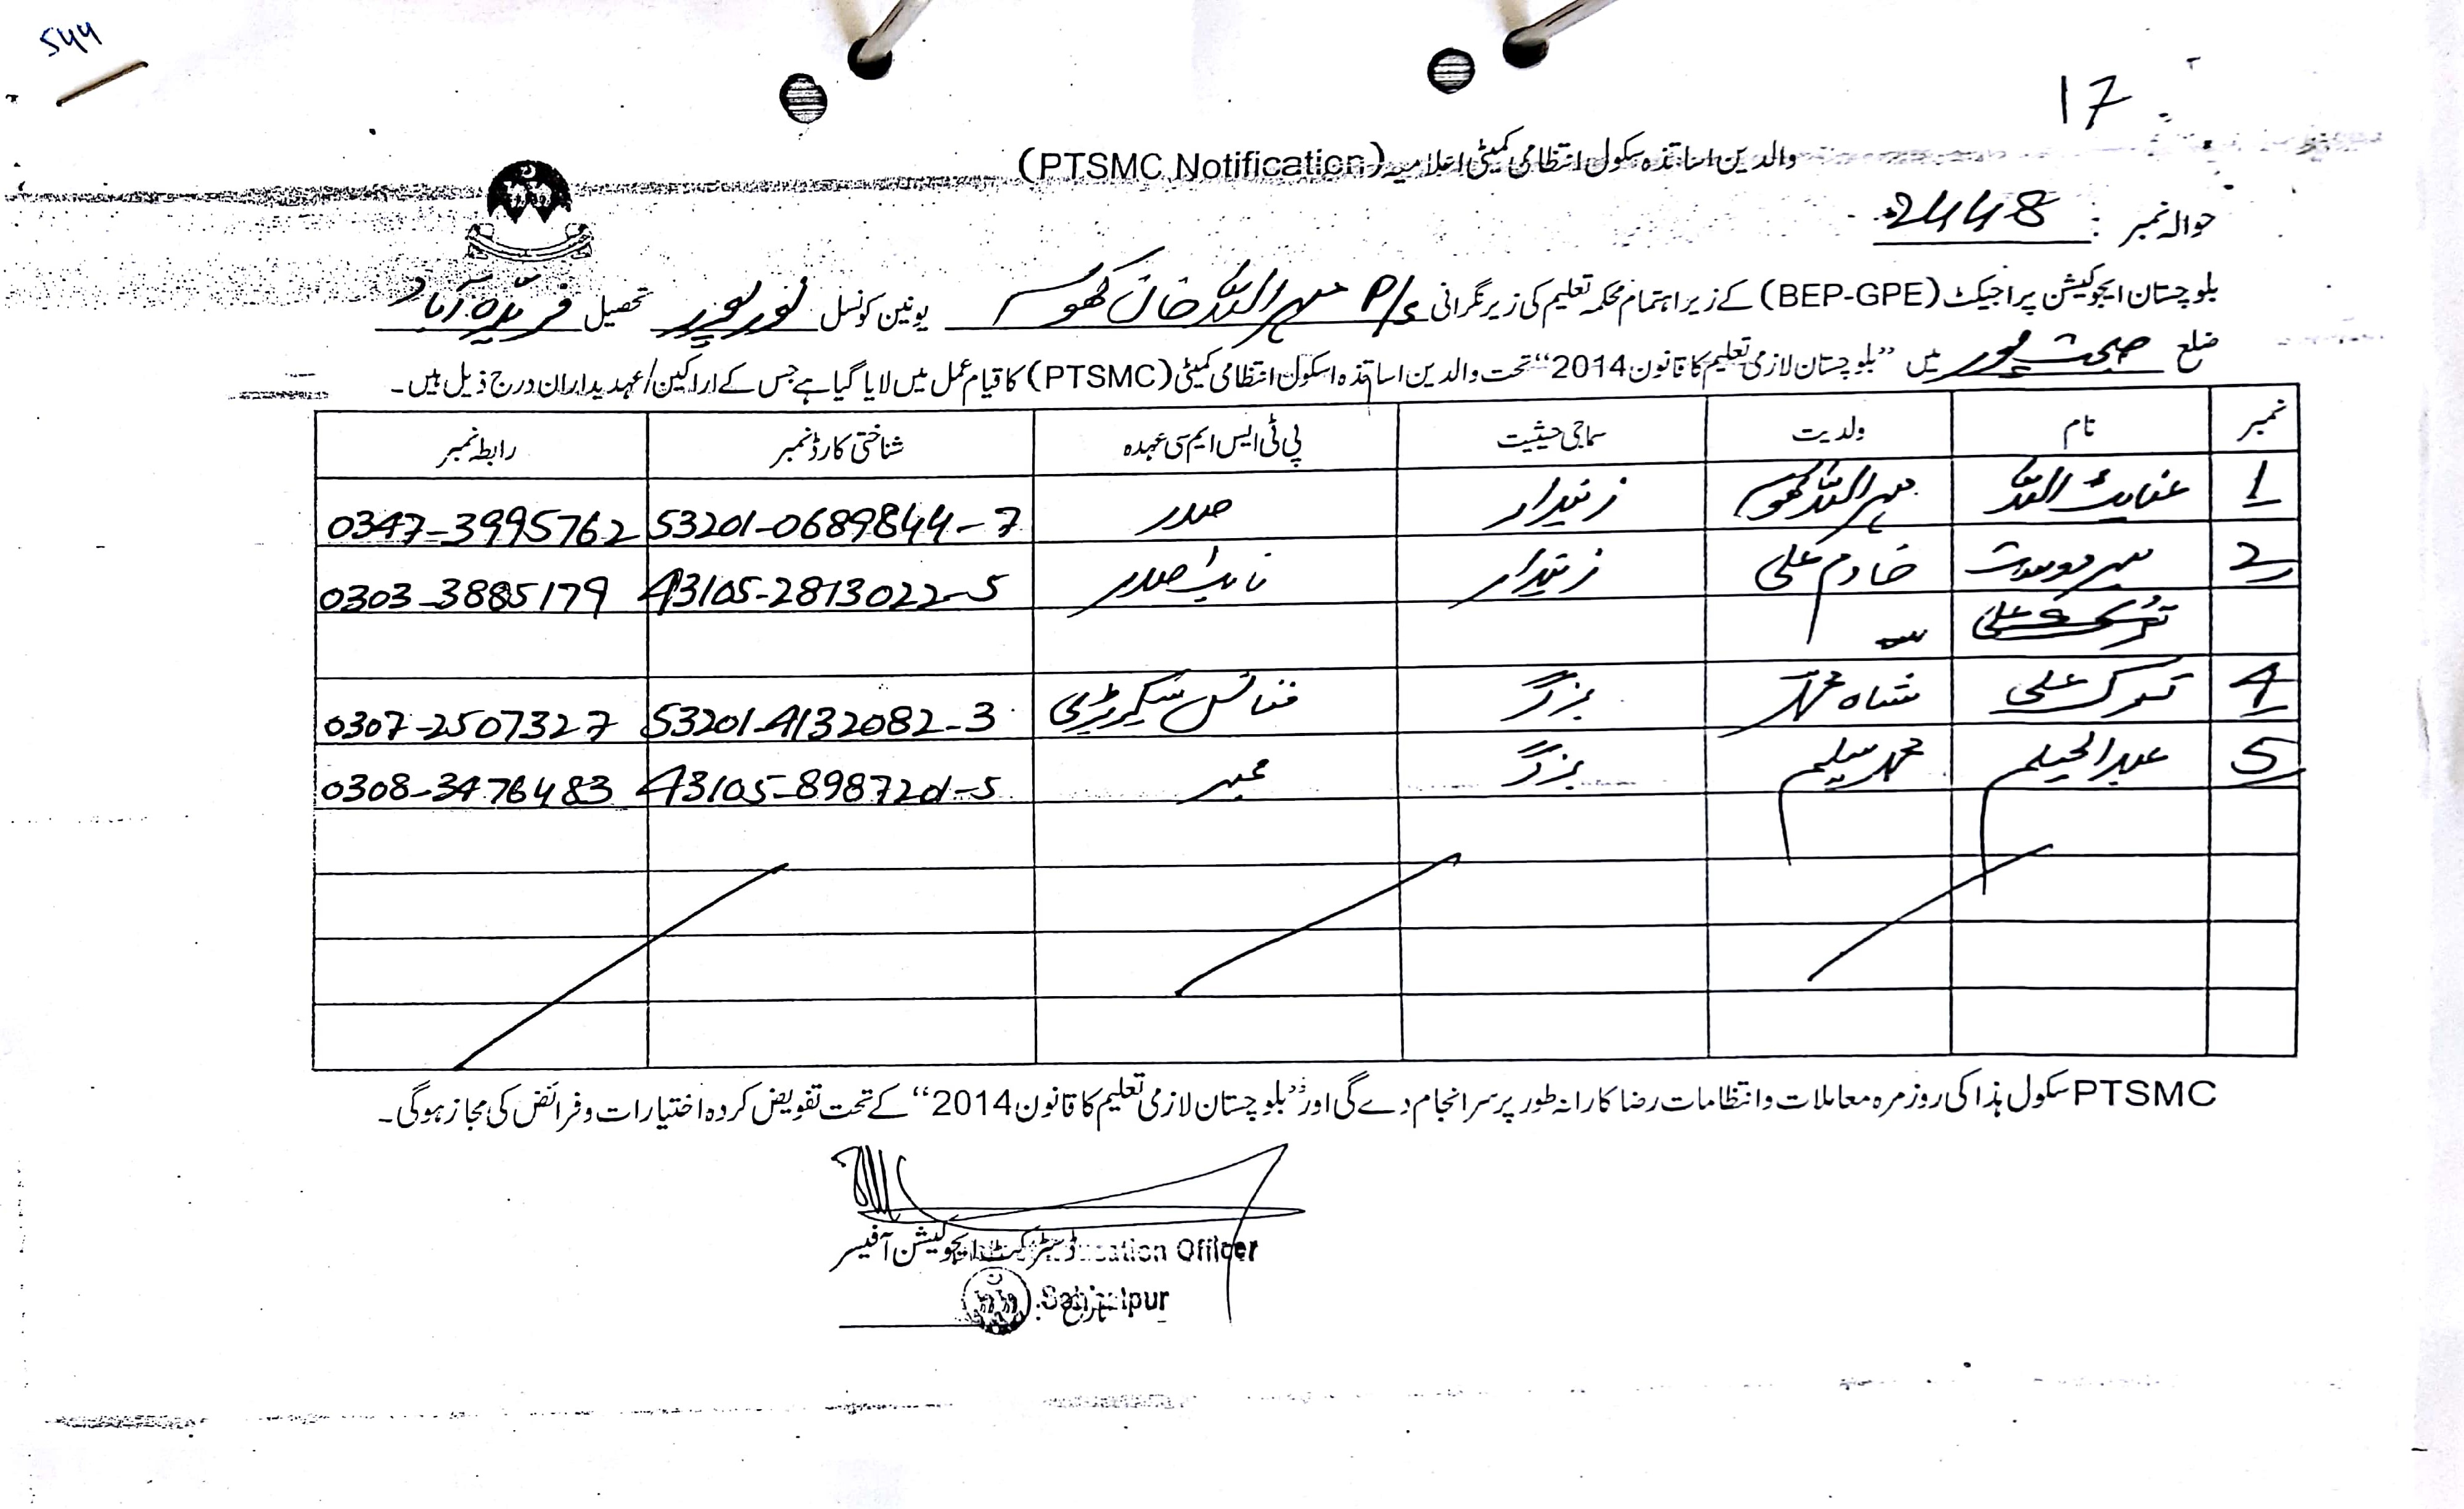 544
17
والدین اساتذہ سکول انتظامی کمیٹی اعلامیہ (PTSMC Notification)
حوالہ نمبر : 2448
بلوچستان ایجوکیشن پراجیکٹ (BEP-GPE) کے زیر اہتمام محکمہ تعلیم کی زیر نگرانی P/S مہراللہ خان کھوسہ یونین کونسل نورپور تحصیل فریدآباد
ضلع صحبت پور میں ”بلوچستان لازمی تعلیم کا قانون 2014“ تحت والدین اساتذہ اسکول انتظامی کمیٹی (PTSMC) کا قیام عمل میں لایا گیا ہے جس کے اراکین/عہدیداران درج ذیل ہیں۔
نمبر نام ولدیت سماجی حیثیت پی ٹی ایس ایم سی عہدہ شناختی کارڈ نمبر رابطہ نمبر
1 عنایت اللہ مہراللہ کھوسہ زمیندار صدر 53201-0689844-7 0347-3995762
2 میر دوست خادم علی زمیندار نائب صدر 43105-2813022-5 0303-3885179
4 علی شاہ محمد بزگر فنانس سیکریٹری 53201-4132082-3 0307-2507327
5 عبدالحلیم محمد سلیم بزگر ممبر 0308-3476483
PTSMC سکول ہذا کی روزمرہ معاملات و انتظامات رضاکارانہ طور پر سرانجام دے گی اور ”بلوچستان لازمی تعلیم کا قانون 2014“ کے تحت تفویض کردہ اختیارات و فرائض کی مجاز ہوگی۔
ڈسٹرکٹ ایجوکیشن آفیسر
Education Officer
Sohbatpur
تاریخ: